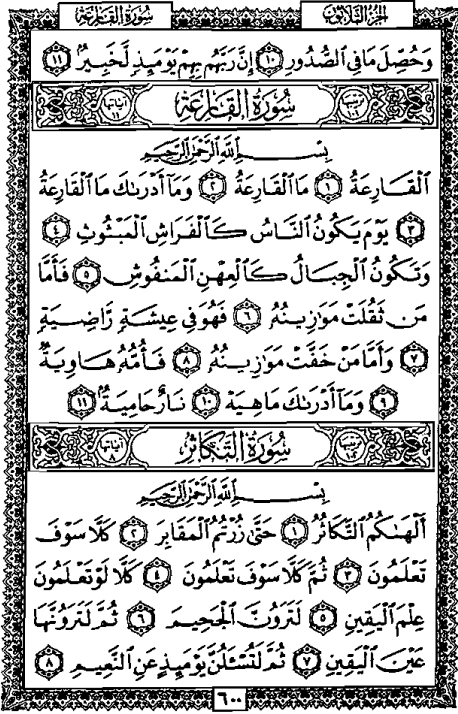 الجزء الثلاثون سورة القارعة
وَحُصِّلَ مَا فِي ٱلصُّدُورِ ١٠ إِنَّ رَبَّهُم بِهِمْ يَوْمَئِذٍ لَّخَبِيرٌۢ ١١
سُورَةُ القَارِعَةِ آياتها ١١
بِسْمِ ٱللَّهِ ٱلرَّحْمَٰنِ ٱلرَّحِيمِ
ٱلْقَارِعَةُ ١ مَا ٱلْقَارِعَةُ ٢ وَمَآ أَدْرَىٰكَ مَا ٱلْقَارِعَةُ
٣ يَوْمَ يَكُونُ ٱلنَّاسُ كَٱلْفَرَاشِ ٱلْمَبْثُوثِ ٤
وَتَكُونُ ٱلْجِبَالُ كَٱلْعِهْنِ ٱلْمَنفُوشِ ٥ فَأَمَّا
مَن ثَقُلَتْ مَوَٰزِينُهُۥ ٦ فَهُوَ فِي عِيشَةٍ رَّاضِيَةٍ
٧ وَأَمَّا مَنْ خَفَّتْ مَوَٰزِينُهُۥ ٨ فَأُمُّهُۥ هَاوِيَةٌ
٩ وَمَآ أَدْرَىٰكَ مَا هِيَهْ ١٠ نَارٌ حَامِيَةٌۢ ١١
سُورَةُ التَّكَاثُرِ آياتها ٨
بِسْمِ ٱللَّهِ ٱلرَّحْمَٰنِ ٱلرَّحِيمِ
أَلْهَىٰكُمُ ٱلتَّكَاثُرُ ١ حَتَّىٰ زُرْتُمُ ٱلْمَقَابِرَ ٢ كَلَّا سَوْفَ
تَعْلَمُونَ ٣ ثُمَّ كَلَّا سَوْفَ تَعْلَمُونَ ٤ كَلَّا لَوْ تَعْلَمُونَ
عِلْمَ ٱلْيَقِينِ ٥ لَتَرَوُنَّ ٱلْجَحِيمَ ٦ ثُمَّ لَتَرَوُنَّهَا
عَيْنَ ٱلْيَقِينِ ٧ ثُمَّ لَتُسْـَٔلُنَّ يَوْمَئِذٍ عَنِ ٱلنَّعِيمِ ٨
٦٠٠